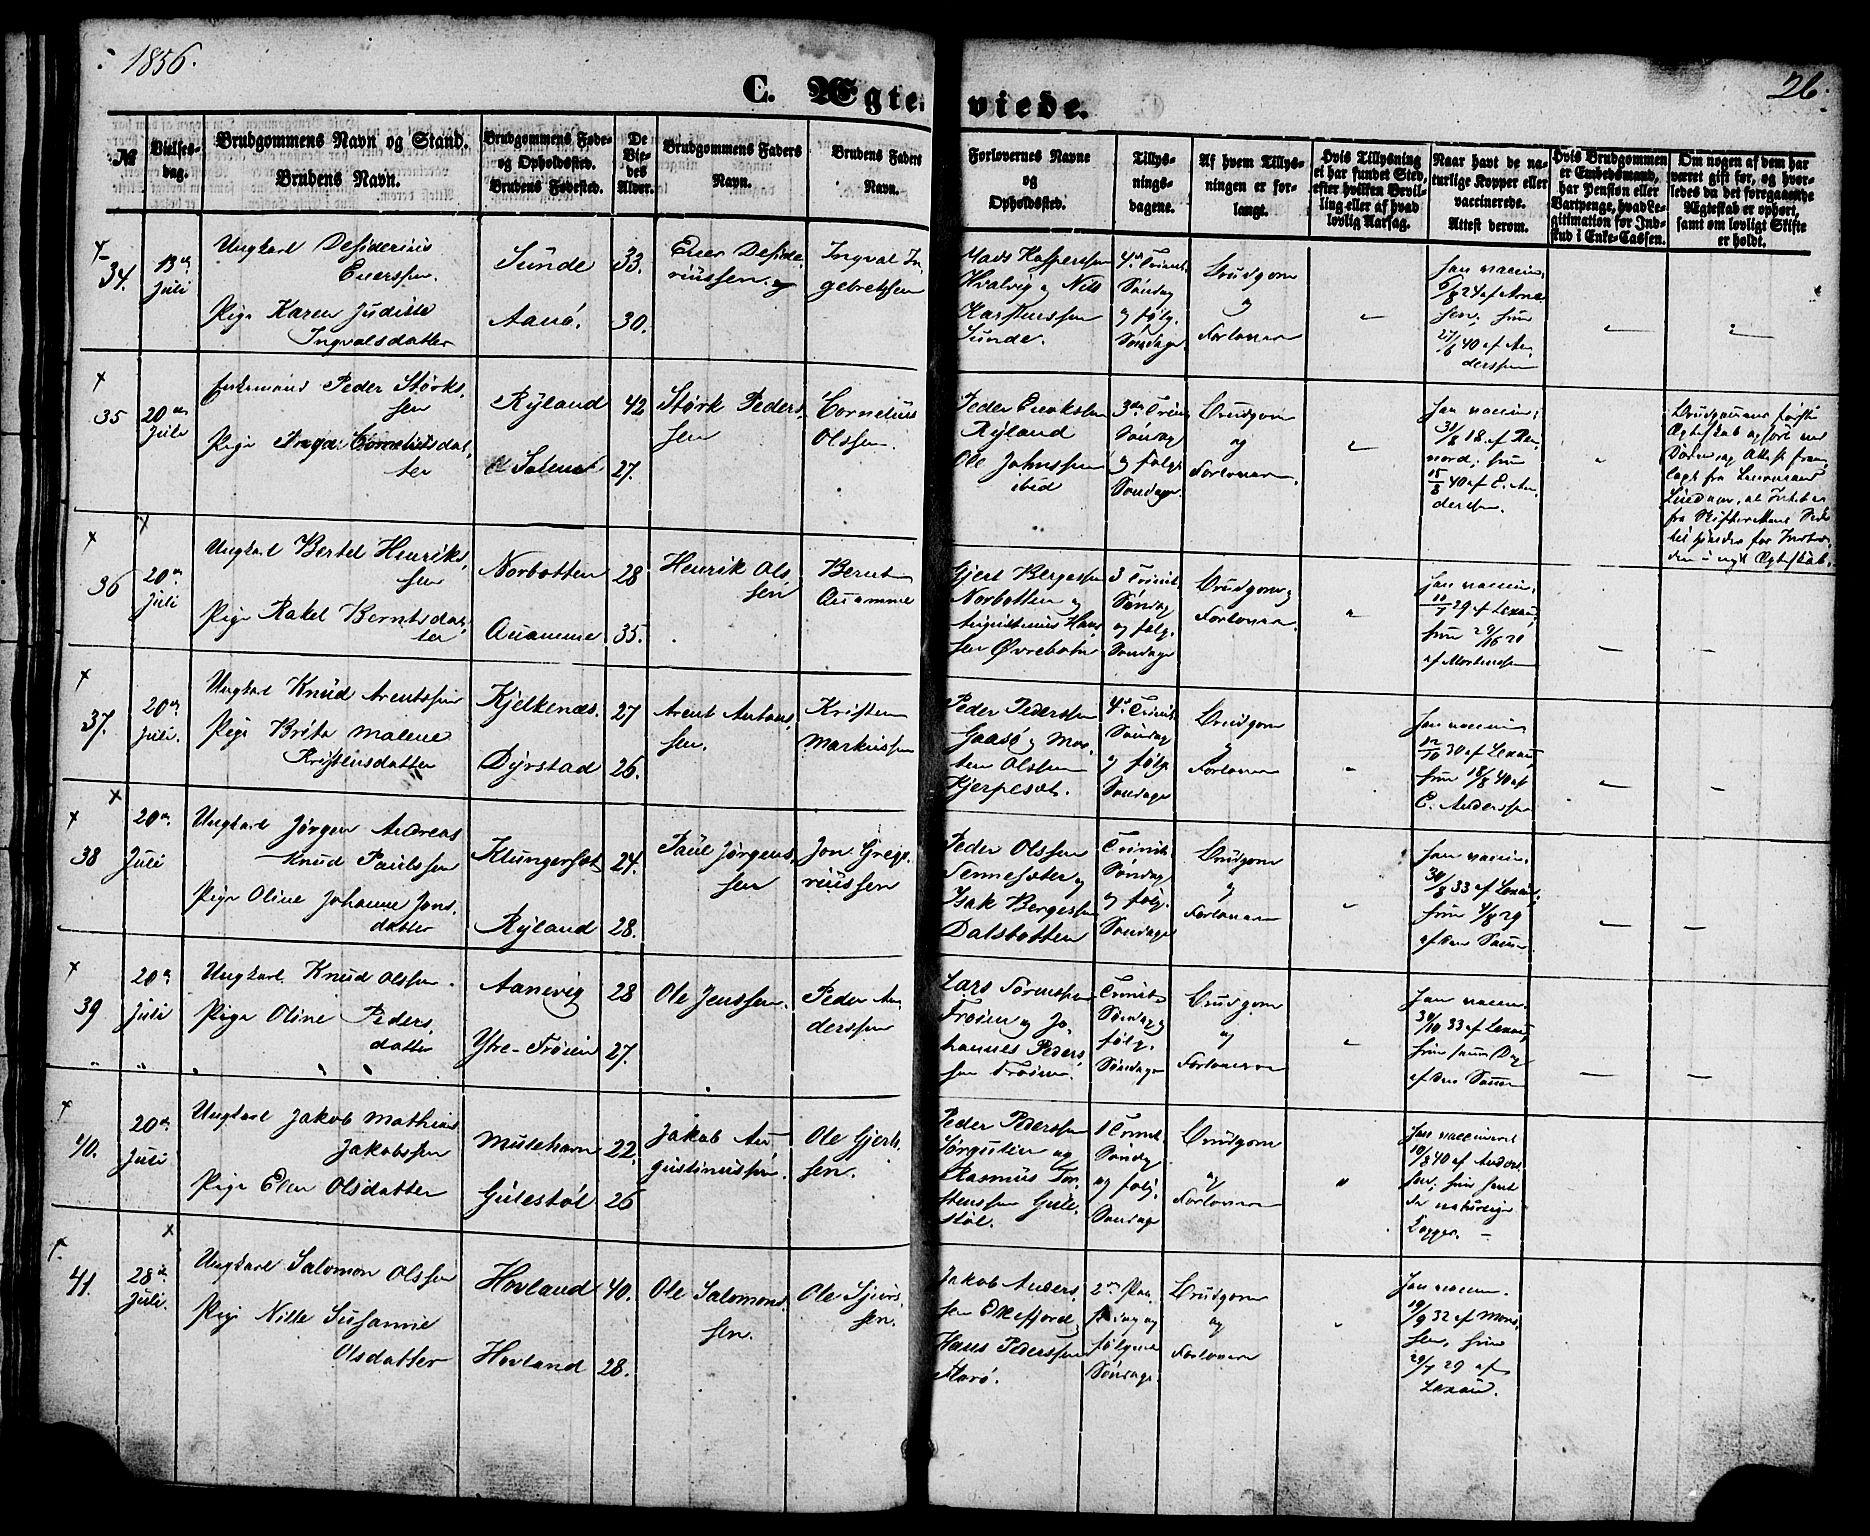 1856.
26.
C. Ægte- viede.
№
Vielses-dag.
Brudgommens Navn og Stand.
Brudens Navn.
Brudgommens Føde- og Opholdssted.
Brudens Fødested.
De Viedes Alder.
Brudgommens Faders Navn.
Brudens Faders Navn.
Forlovernes Navne og Opholdssted.
Tillysnings-dagene.
Af hvem Tillysningen er forlangt.
Hvis Tillysning ei har fundet Sted, efter hvilken Bevilling eller af hvad lovlig Aarsag.
Naar havt de naturlige Kopper eller vaccinerede. Attest derom.
Hvis Brudgommen er Embedsmand, har Pension eller Vartpenge, hvad Legitimation for Indskud i Enke-Cassen.
Om nogen af dem har været gift før, og hvorledes da det foregaaende Ægteskab er ophørt, samt om lovligt Skifte er holdt.
34. 13de Juli
Ungkarl Desiderius Enerssen.
Pige Karen Juditte Ingvalsdatter
Sunde 33.
Aanø. 30.
Ener Desideriussen
Ingval Ingebretssen
Mads Kasperssen
Hvalvig og Nils
Karstenssen
Sunde.
4de Trinit. Søndag og følg. Søndage.
Brudgom og Forlovere
Han vaccin. 6/8 24 af Arnesen; hun 27/6 40 af Anderssen
35 20de Juli
Enkemand Peder Størkssen
Pige Inga Corneliusdatter
Ryland 42
Solem 27.
Størk Pederssen
Cornelius Olssen.
Peder Enokssen
Ryland
Ole Johnssen
ibid
3die Trinit. Søndag og følg. Søndage.
Brudgom og Forlovere.
Han vaccin. 31/8 18 af; hun 15/8 40 af E. Anderssen.
Brudgommens første Ægteskab
36 20de Juli
Ungkarl Bertel Henrikssen
Pige Rakel Berntsdatter
Norbotten 28
Quamme 35.
Henrik Olssen
Bernt Quamme
Gjert Bergessen
Norbotten og
Augustinus Hanssen Øvrebotn
3 Trinit. Søndag og følg. Søndage
Brudgom og Forlovere.
Han vaccin. 29 af Lexau; hun 29/10 21 af Mortenssen
37. 20de Juli.
Ungkarl Knud Arentssen
Pige Brite Malene Kristensdatter
Kjelkenæs. 27
Dyrstad 26.
Arent Antonssen.
Kristen Markussen
Peder Pederssen
Gaasø og Morten Olssen
Hjerpeset.
4de Trinit. Søndag og følg. Søndage
Brudgom og Forlovere
Han vaccin. 12/10 30 af Lexau; hun 18/8 40 af E. Anderssen
38 20de Juli
Ungkarl Jørgen Andreas Knud Paulssen
Pige Oline Johanne Jonsdatter
Klungerset 24.
Ryland 28.
Paul Jørgenssen
Jon Gregoriussen
Peder Olssen
Tennesæter og
Isak Bergessen
Dalsbotten
Trinit. Søndag og følg. Søndage
Brudgom og Forlovere
Han vaccin. 30/8 33 af Lexau; hun 4/8 29 af den Samme
39 20de Juli
Ungkarl Knud Olssen.
Pige Oline Pedersdatter
Aanevig 28
Ytre-Frøien 27.
Ole Jenssen.
Peder Anderssen
Lars Sørenssen
Frøien og Johannes Pederssen Frøien.
Trinit. Søndag og følg. Søndage
Brudgom og Forlovere
Han vaccin. 30/10 33 af Lexau; hun samme Dag af den Samme
40. 20de Juli
Ungkarl Jakob Mathias Jakobssen
Pige Elen Olsdatter
Mulehavn 22.
Gulestøl 26
Jakob Augustinussen
Ole Gjertssen.
Peder Pederssen
Sørgulen og
Rasmus Torstenssen Gulestøl.
1 Trinit. Søndag og følg. Søndage
Brudgom og Forlovere
Han vaccineret 19/8 40 af Anderssen; hun havt de naturlige Kopper.
41. 28de Juli.
Ungkarl Salomon Olssen
Pige Nille Susanne Olsdatter
Hovland 40.
Hovland 28.
Ole Salomonssen.
Ole Sjurssen.
Jakob Anderssen Eikefjord og
Hans Pederssen
Florø.
2den Paaskedag og følgende Søndage.
Brudgom og Forlovere
Han vaccin. 19/9 32 af Monssen, hun 29/7 29 af Lexau.